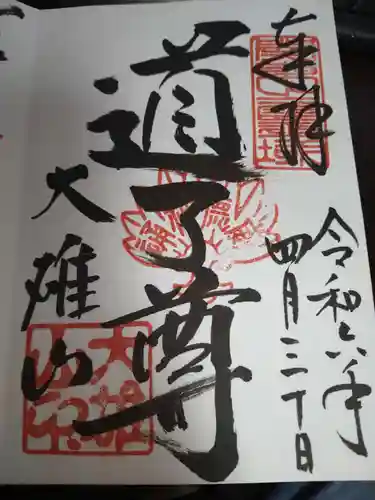 奉拝
令和六年
四月三十日
道了尊
大雄山
大雄山印